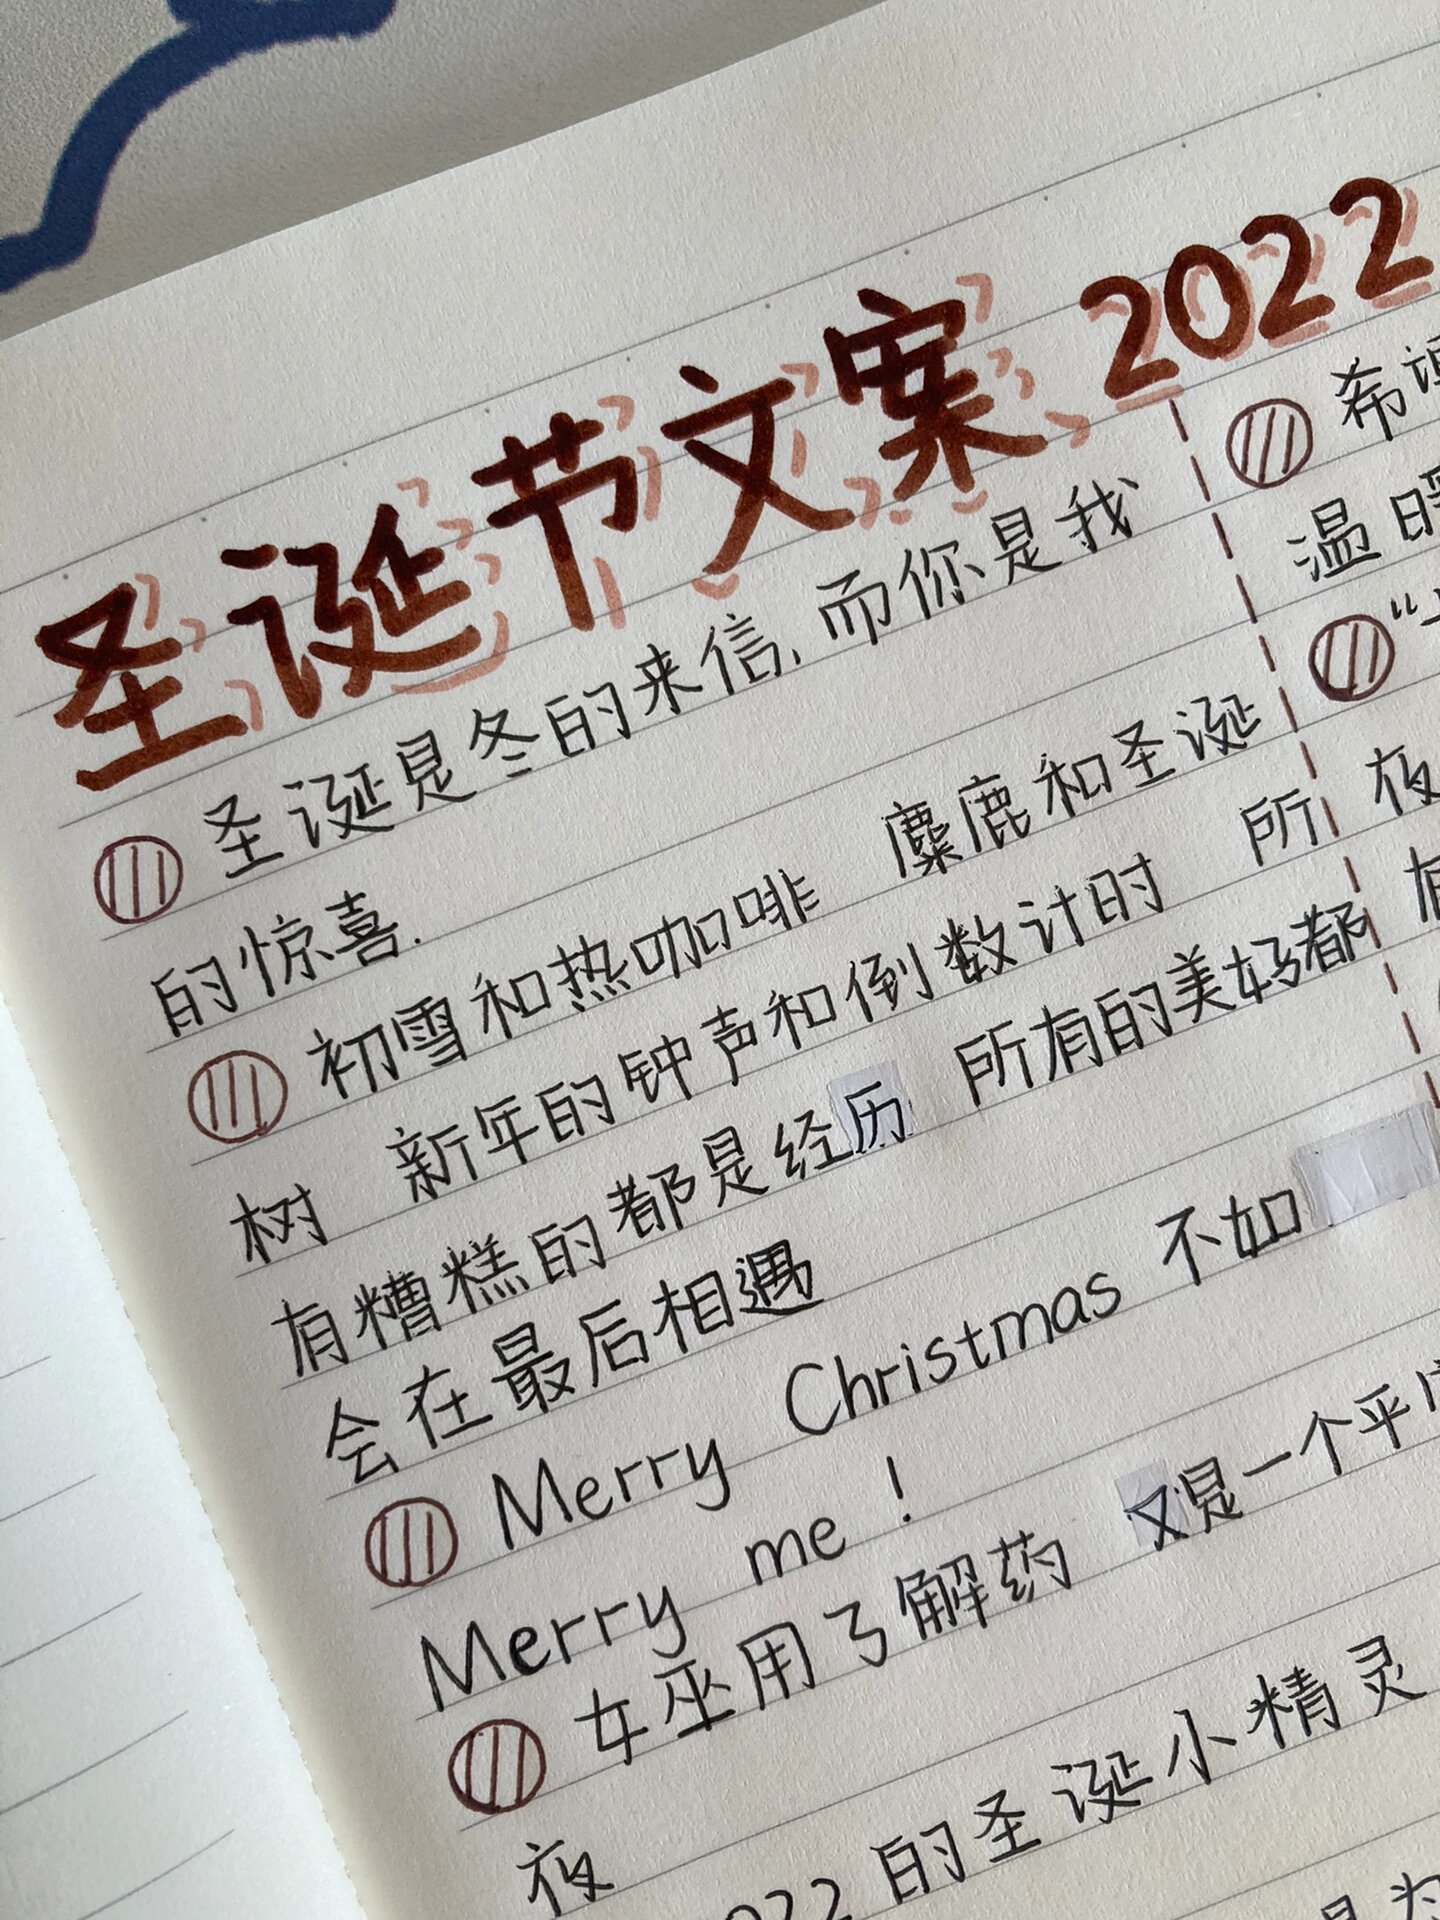 圣诞节文案 2022
圣诞是冬的来信,而你是我
的惊喜.
初雪和热咖啡 麋鹿和圣诞
树 新年的钟声和倒数计时 所
有糟糕的都是经历 所有的美好都
会在最后相遇
Merry Christmas 不如
Merry me!
女巫用了解药 又是一个平
夜
2022的圣诞小精灵
希
温暖
夜